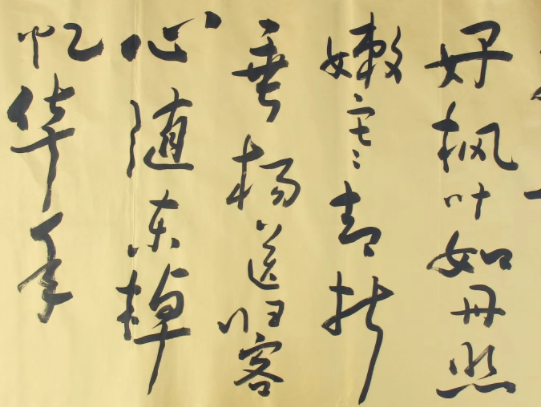 好枫叶如丹照
嫩寒却折
垂杨送归客
心随东棹
忆华年